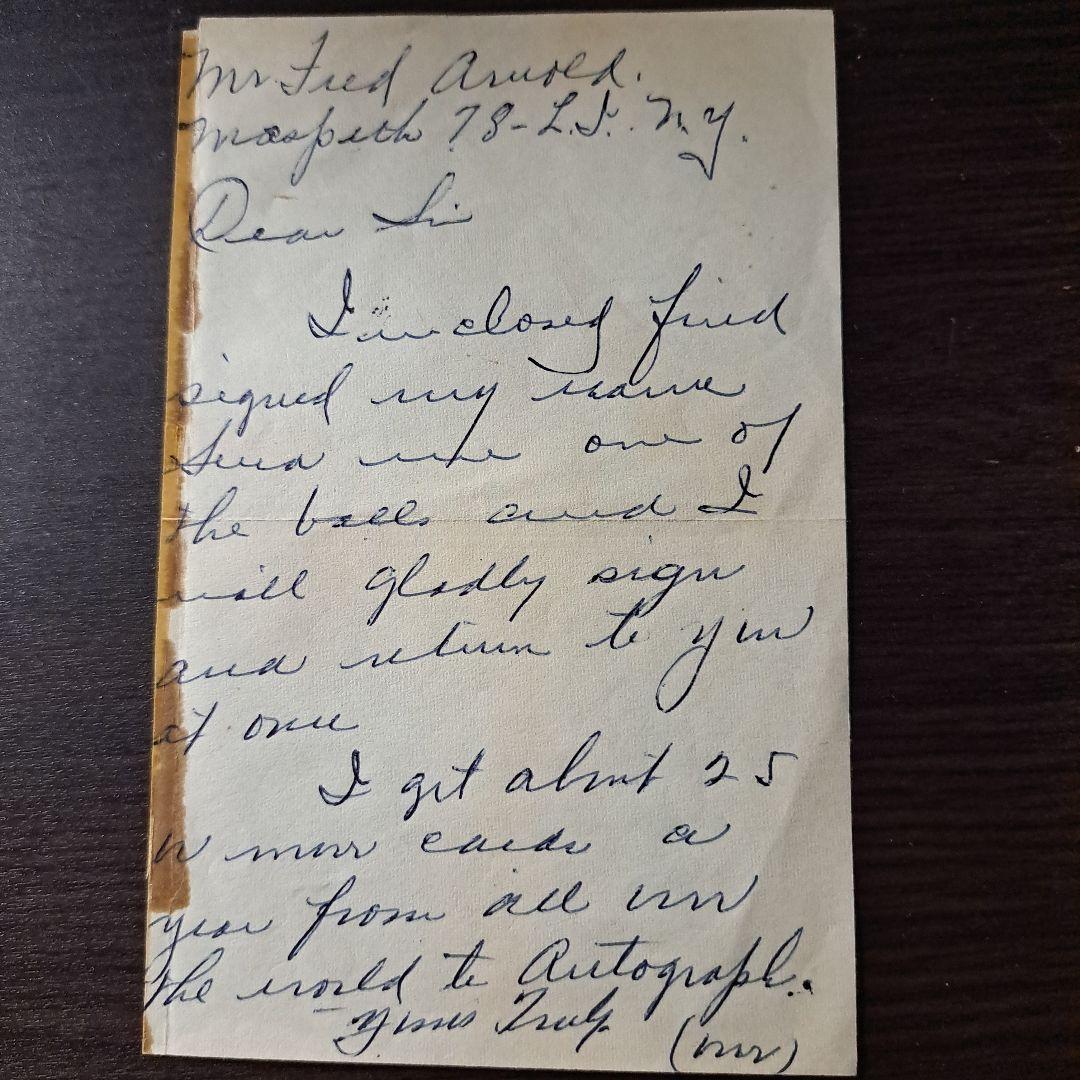 Mr Fred Arnold.
Maspeth 78-L.I. N.Y.
Dear Sir
Inclosed find
signed my name
Send me one of
the balls and I
will gladly sign
and return to you
at once
I get about 25
or more cards a
year from all over
the world to Autograph.
Yours Truly
(over)